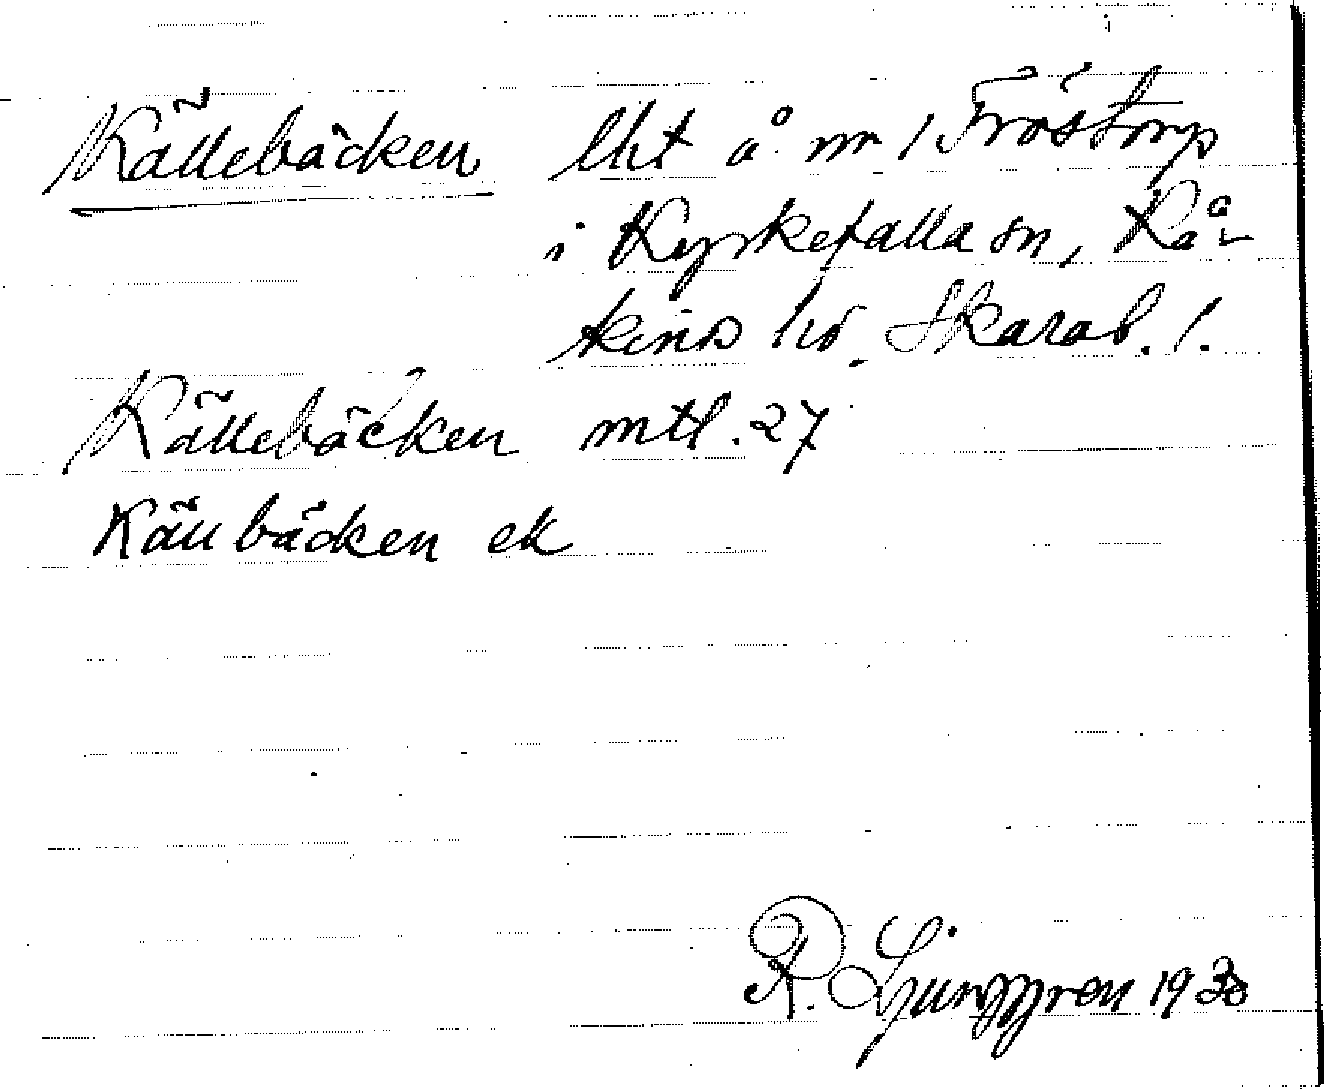 Källebäcken lht å nr 1 Fröstorp
i Kyrkefalla sn, Kå-
kinds hd. Skarab. l.
Källebäcken mtl. 27
Källbäcken ek
R. Ljunggren 1930